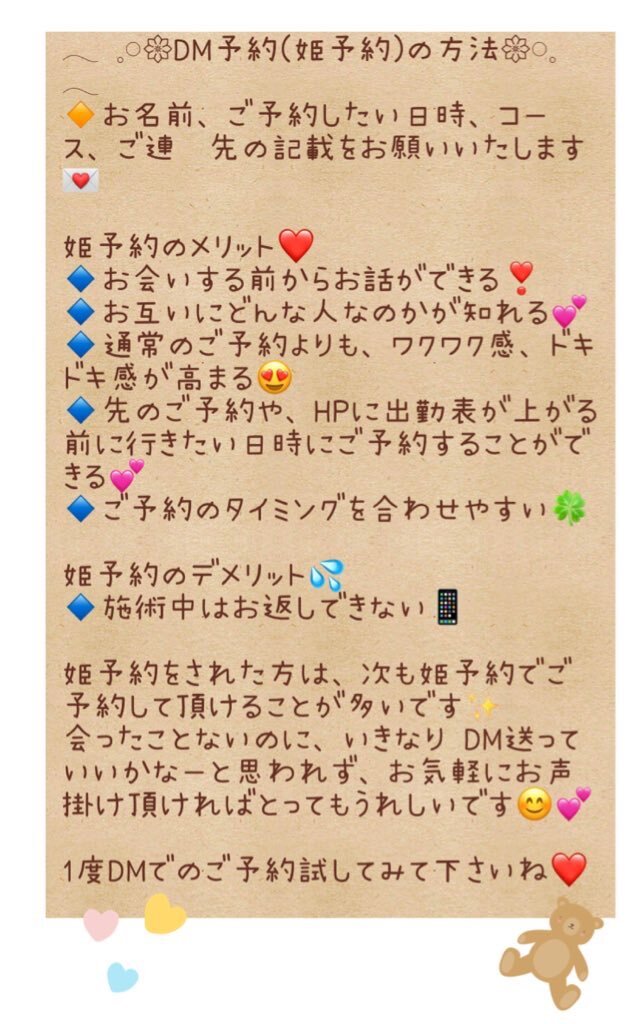 ︵ 𓈒𓏸𑁍DM予約(姫予約)の方法𑁍𓏸𓈒
︵
🔶お名前、ご予約したい日時、コー
ス、ご連 先の記載をお願いいたします
💌
姫予約のメリット❤️
🔷お会いする前からお話ができる❣️
🔷お互いにどんな人なのかが知れる💕
🔷通常のご予約よりも、ワクワク感、ドキ
ドキ感が高まる😍
🔷先のご予約や、HPに出勤表が上がる
前に行きたい日時にご予約することがで
きる💕
🔷ご予約のタイミングを合わせやすい🍀
姫予約のデメリット💦
🔷施術中はお返しできない📱
姫予約をされた方は、次も姫予約でご
予約して頂けることが多いです✨
会ったことないのに、いきなり DM送って
いいかなーと思われず、お気軽にお声
掛け頂ければとってもうれしいです😊💕
1度DMでのご予約試してみて下さいね❤️